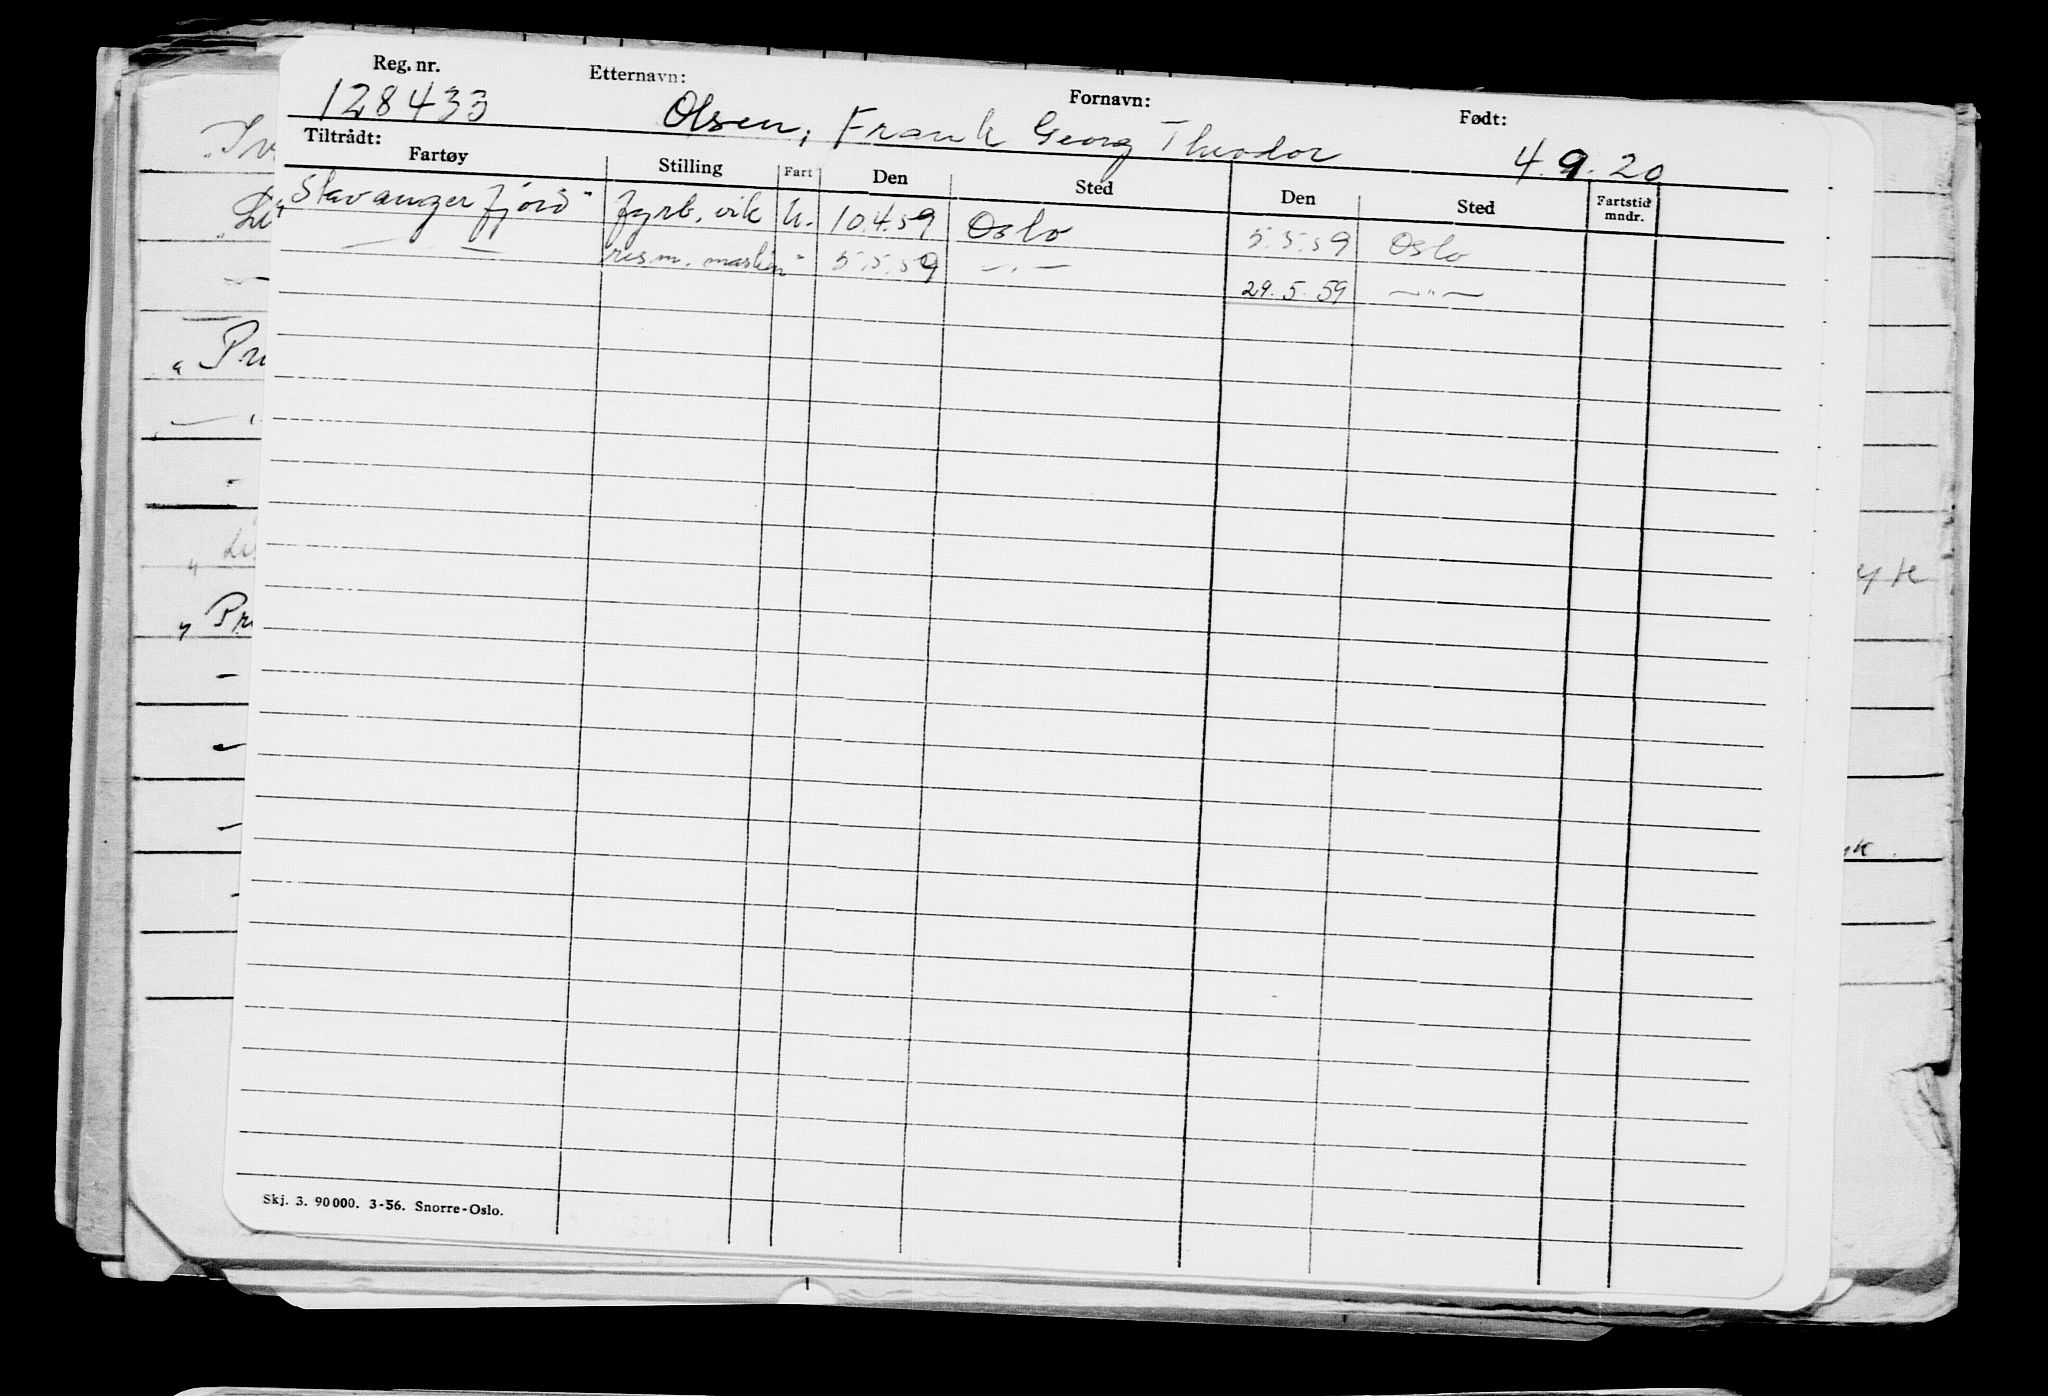 Reg. nr. Etternavn: Fornavn: Født:
128433 Olsen, Frank Georg Theodor 4.9.20
Tiltrådt:
Fartøy Stilling Fart Den Sted Den Sted Fartstid mndr.
"Stavangerfjord" fyrb. vik u. 10.4.59 Oslo 5.5.59 Oslo
— " — res.m. maskin " 5.5.59 — " — 29.5.59 — " —
Pr
Skj. 3. 90 000. 3-56. Snorre-Oslo.